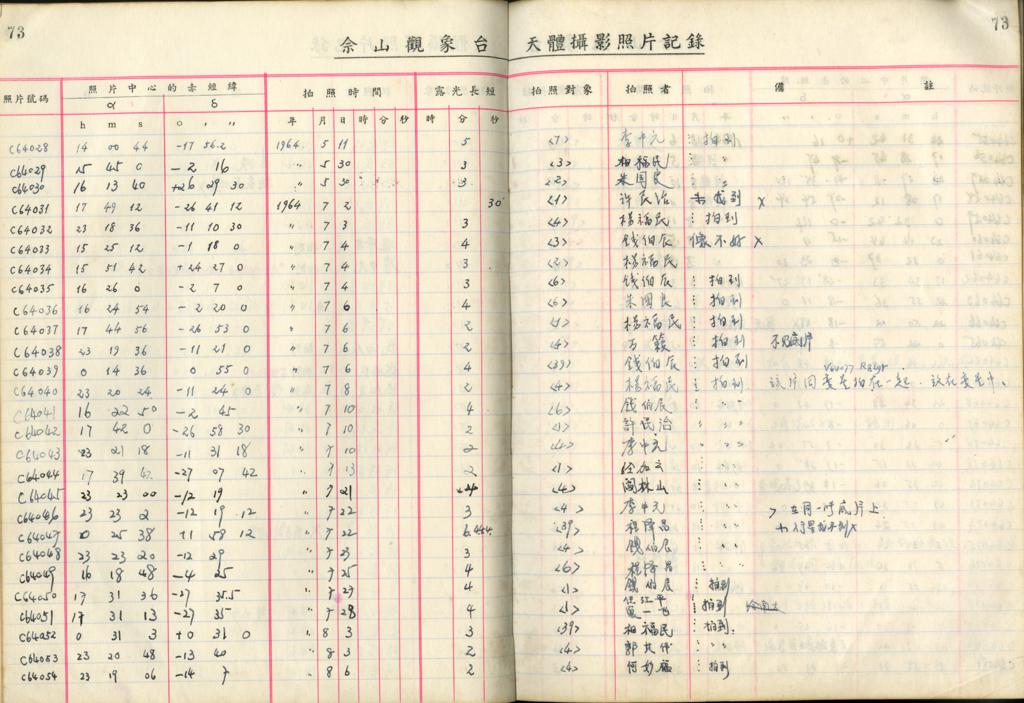 73 73
佘山觀象台 天體攝影照片記錄
照片號碼 照片中心的赤經緯 拍照時間 露光長短 拍照對象 拍照者 備註
α δ
h m s ° ′ ″ 年 月 日 時 分 秒 時 分 秒
C64028 14 00 44 -17 56.2 1964. 5 11 5 <7> 李中元 ⋮ 拍到
C64029 15 45 0 -2 16 〃 5 30 3 <3> 楊福民 ⋮ 〃
C64030 16 13 40 +26 29 30 〃 5 30 3 <2> 朱國良 ⋮ 〃
C64031 17 49 12 -26 41 12 1964 7 2 30 <1> 许民治 未找到 x
C64032 23 18 36 -11 10 30 〃 7 3 3 <4> 楊福民 ⋮ 拍到
C64033 15 25 12 -1 18 0 〃 7 4 4 <3> 钱伯辰 像不好 x
C64034 15 51 42 +24 27 0 〃 7 4 3 <2> 楊福民
C64035 16 26 0 -2 7 0 〃 7 4 3 <6> 钱伯辰 ⋮ 拍到
C64036 16 24 54 -2 20 0 〃 7 6 4 <6> 朱國良 ⋮ 拍到
C64037 17 44 56 -26 53 0 〃 7 6 2 <1> 楊福民 ⋮ 拍到
C64038 23 19 36 -11 21 0 〃 7 6 2 <4> 万籁 ⋮ 拍到
C64039 0 14 36 0 55 0 〃 7 6 4 <39> 钱伯辰 ⋮ 拍到
C64040 23 20 24 -11 24 0 〃 7 8 2 <4> 楊福民 ⋮ 拍到 该片同变星拍在一起.放在变星中。
C64041 16 22 50 -2 45 〃 7 10 4 <6> 钱伯辰 ⋮ 〃 〃
C64042 17 42 0 -26 58 30 〃 7 10 4 <1> 許民治 ⋮ 〃 〃
C64043 23 21 18 -11 31 18 〃 7 10 2 <4> 李中元 〃 〃
C64044 17 39 42 -27 07 42 〃 7 13 2 <1> ⋮ 〃 〃
C64045 23 23 00 -12 19 〃 7 21 4 <4> 阎林山 ⋮ 〃 〃
C64046 23 23 2 -12 19 12 〃 7 22 3 <4> 李中元 ⋮ 〃 〃 > 在同一片底片上
C64047 0 25 38 +1 58 12 〃 7 22 <39> 程降昌 ⋮ 〃 〃
C64048 23 23 20 -12 29 〃 7 23 3 <4> 钱伯辰 ⋮ 〃 〃
C64049 16 18 48 -4 25 〃 7 25 4 <6> 程降昌 ⋮ 〃 〃
C64050 17 31 36 -27 35.5 〃 7 27 4 <1> 钱伯辰 ⋮ 拍到
C64051 17 31 13 -27 35 〃 7 28 4 <1> ⋮ 拍到
C64052 0 31 3 +0 31 0 〃 8 3 3 <39> 楊福民 ⋮ 拍到.
C64053 23 20 48 -13 40 〃 8 3 2 <4> ⋮ 〃 〃
C64054 23 19 06 -14 7 〃 8 6 2 <4> 何妙福 ⋮ 拍到